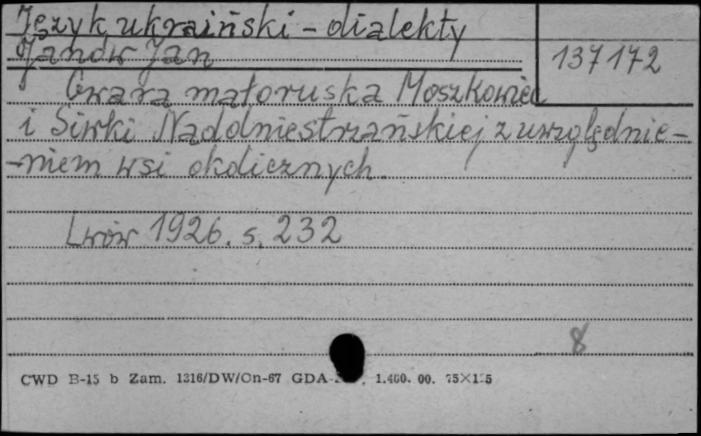 Język ukraiński - dialekty
Janów Jan
137172
Gwara małoruska Moszkowiec
i Siwki Naddniestrzańskiej z uwzględnie-
-niem wsi okolicznych.
Lwów 1926. s. 232
8
CWD B-15 b Zam. 1316/DW/On-67 GDA 1.400. 00. 75×125